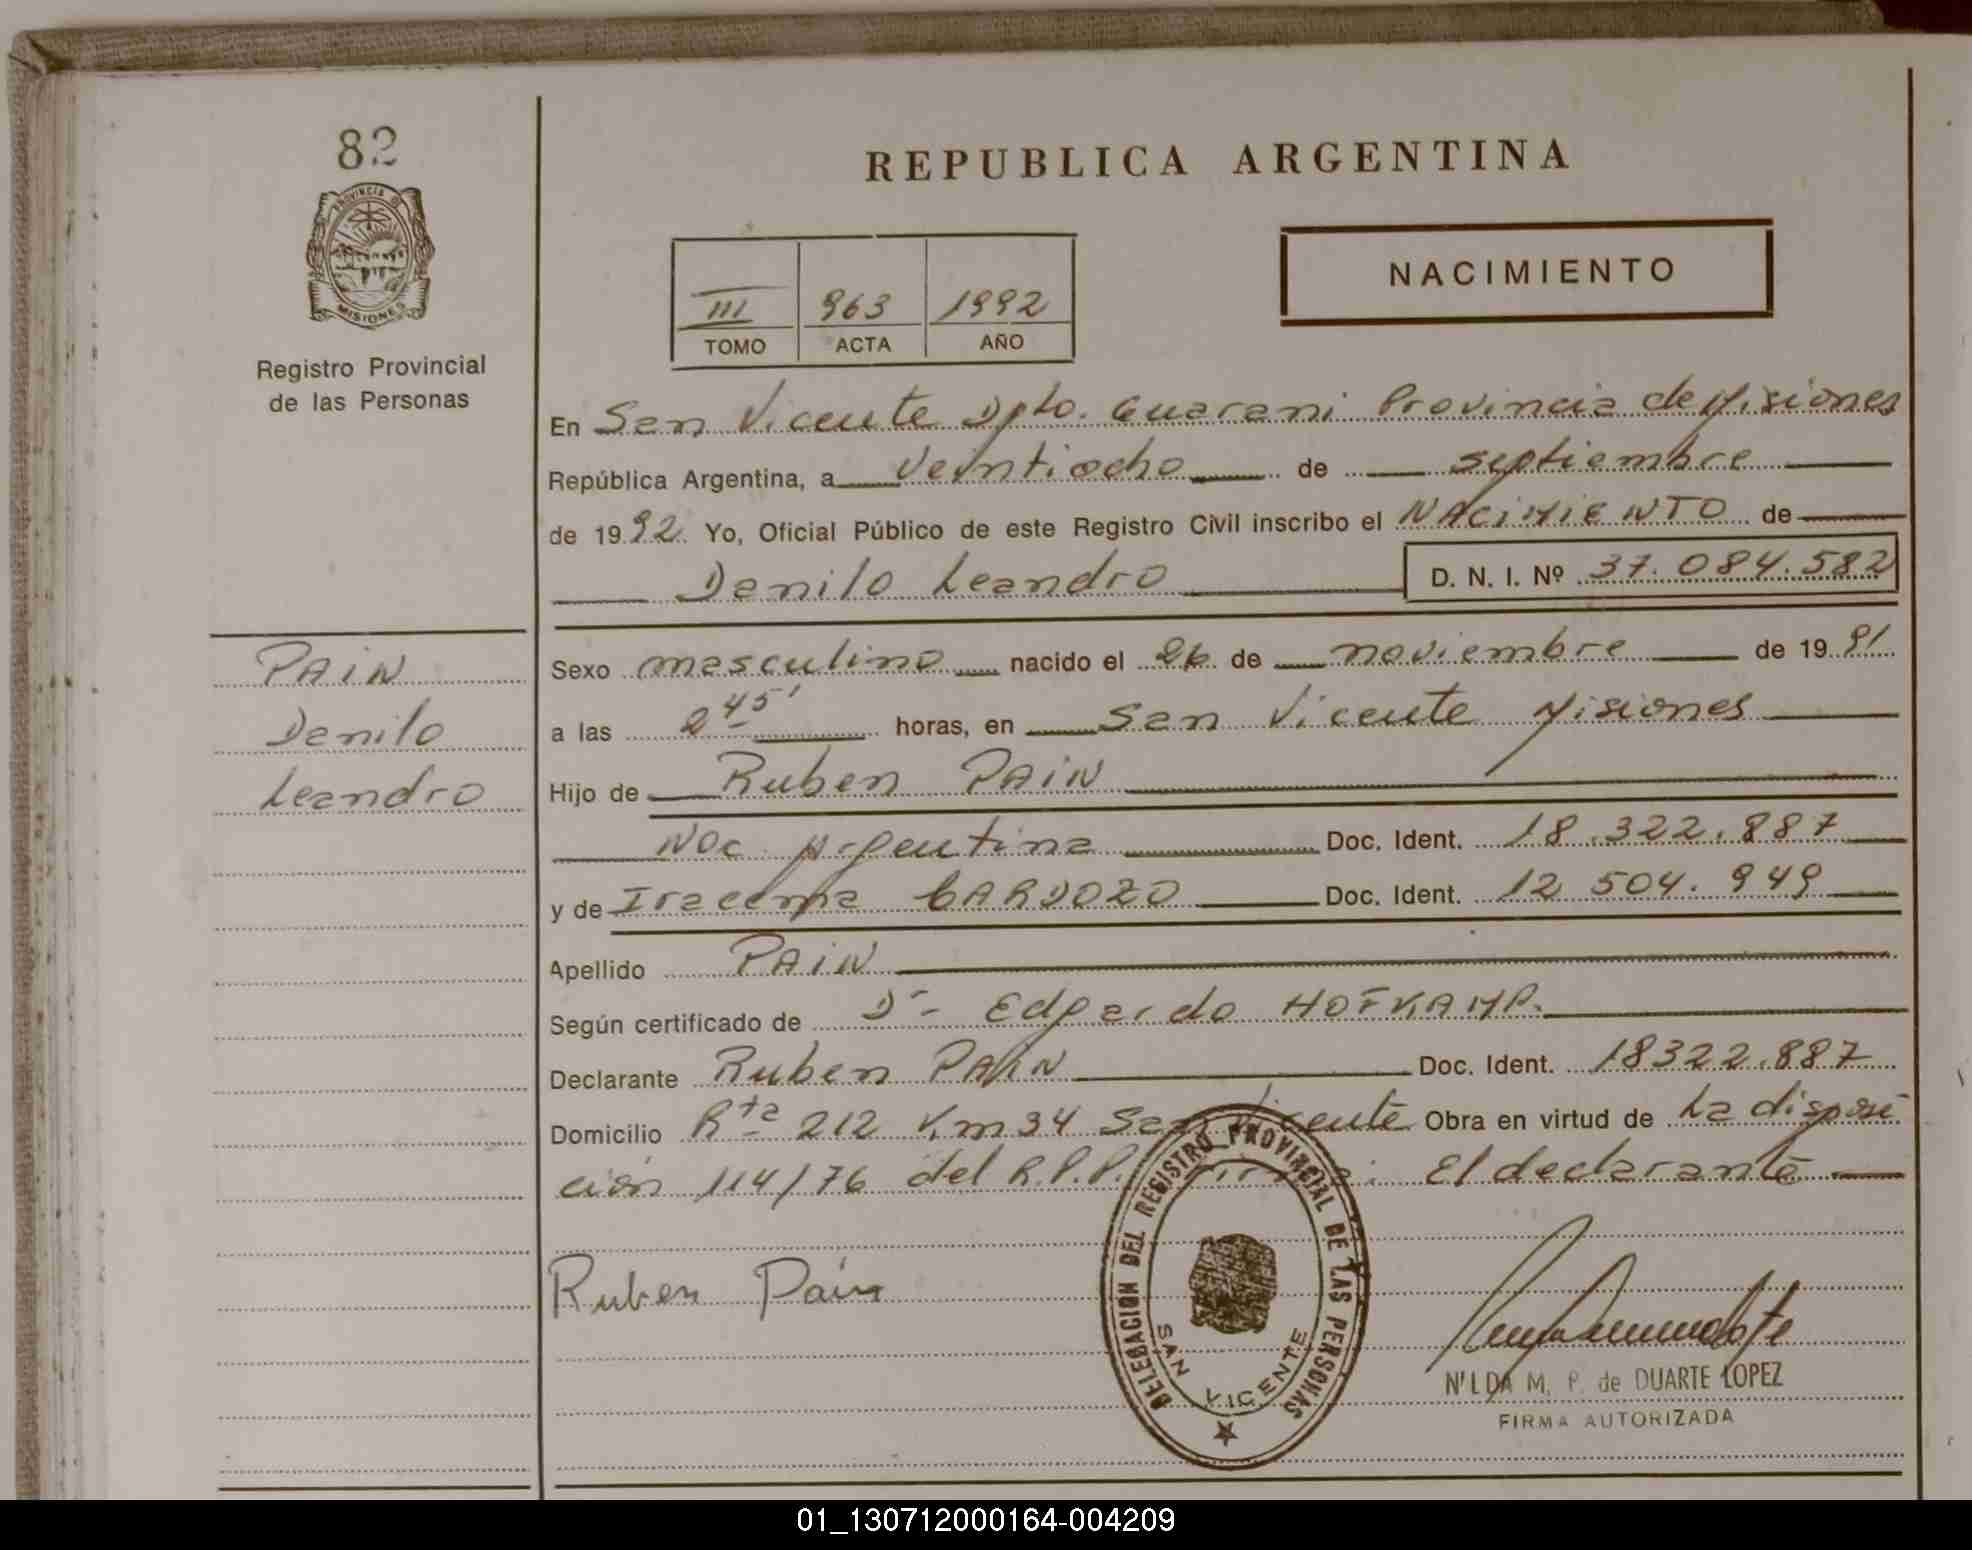 82
PROVINCIA DE
MISIONES
Registro Provincial
de las Personas
PAIN
Danilo
Leandro
REPUBLICA ARGENTINA
NACIMIENTO
III 963 1992
TOMO ACTA AÑO
En San Vicente Dpto. Guarani Provincia de Misiones
República Argentina, a Veintiocho de septiembre
de 1992 Yo, Oficial Público de este Registro Civil inscribo el NACIMIENTO de
Danilo Leandro D. N. I. Nº 37.084.582
Sexo masculino nacido el 26 de noviembre de 1991
a las 2 45' horas, en San Vicente Misiones
Hijo de Ruben PAIN
Nac Argentina Doc. Ident. 18.322.887
y de Iracema CARDOZO Doc. Ident. 12 504.949
Apellido PAIN
Según certificado de Dr- Edgardo HOFKAMP.
Declarante Ruben PAIN Doc. Ident. 18322.887
Domicilio Rta 212 Km 34 San Vicente Obra en virtud de La disposi
ción 114/76 del R.P.P. El declarante
Ruben Pain
DELEGACION DEL REGISTRO PROVINCIAL DE LAS PERSONAS
SAN VICENTE
N'LDA M. P. de DUARTE LOPEZ
FIRMA AUTORIZADA
01_130712000164-004209